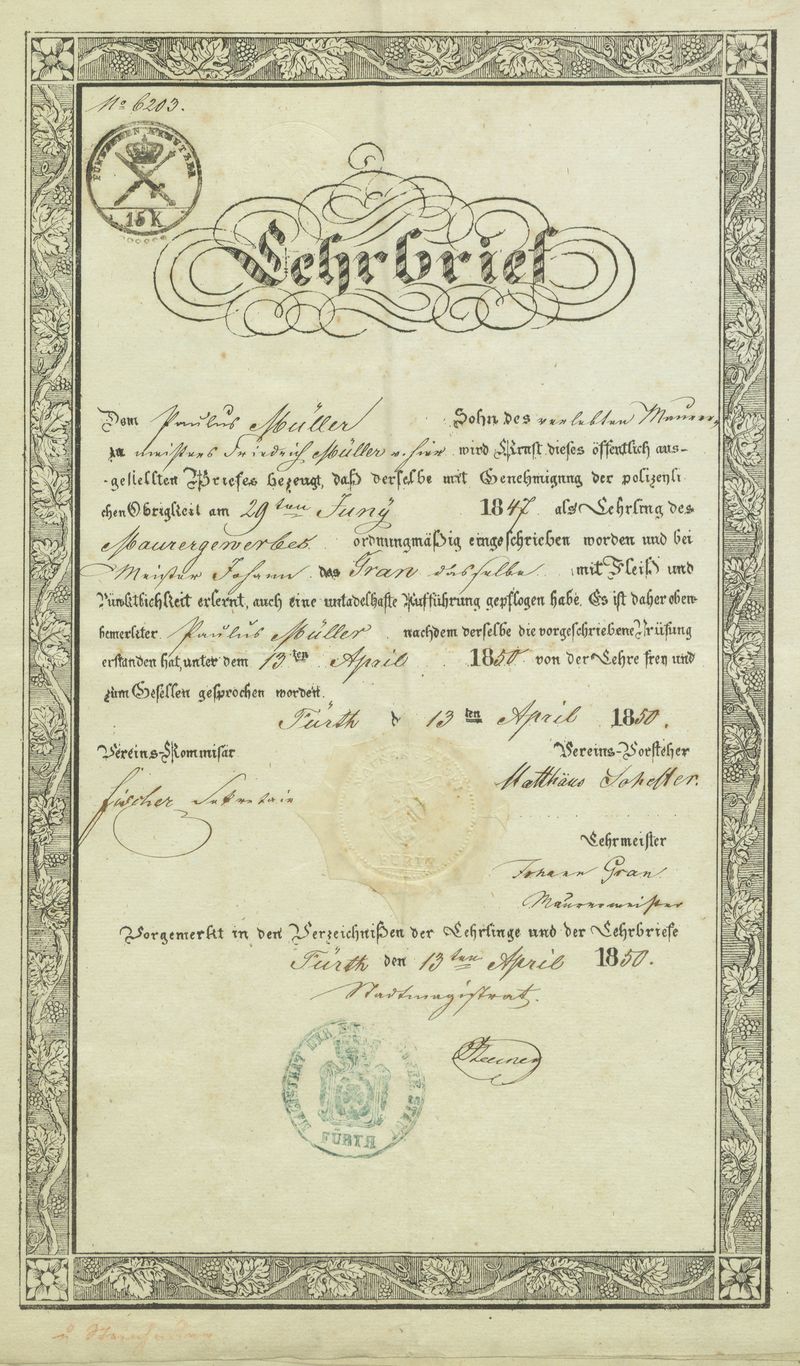 No 6203.
FÜNFZEHEN KREUTZER
15 K
Lehrbrief
Dem Paulus Müller Sohn des verlebten Maurer-
zu meisters Friedrich Müller v. hier wird Kraft dieses öffentlich aus-
-gestellten Briefes bezeugt, daß derselbe mit Genehmigung der polizeyli
chen Obrigkeit am 29ten Juny 1847 als Lehrling des
Maurergewerbes ordnungmäßig eingeschrieben worden und bei
Meister Johann das Gran dasselbe mit Fleiß und
Pünktlichkeit erlernt, auch eine untadelhafte Aufführung gepflogen habe. Es ist daher oben-
bemerkter Paulus Müller nachdem derselbe die vorgeschriebene Prüfung
erstanden hat, unter dem 13ten April 1850 von der Lehre frey und
zum Gesellen gesprochen worden.
Fürth d 13ten April 1850.
Vereins-Kommisär Vereins-Vorsteher
Fischer Sekretair Matthäus
FÜRTH
Lehrmeister
Johann Gran
Maurermeister
Vorgemerkt in den Verzeichnißen der Lehrlinge und der Lehrbriefe
Fürth den 13ten April 1850.
Stadtmagistrat.
MAGISTRAT DER STADT
FÜRTH